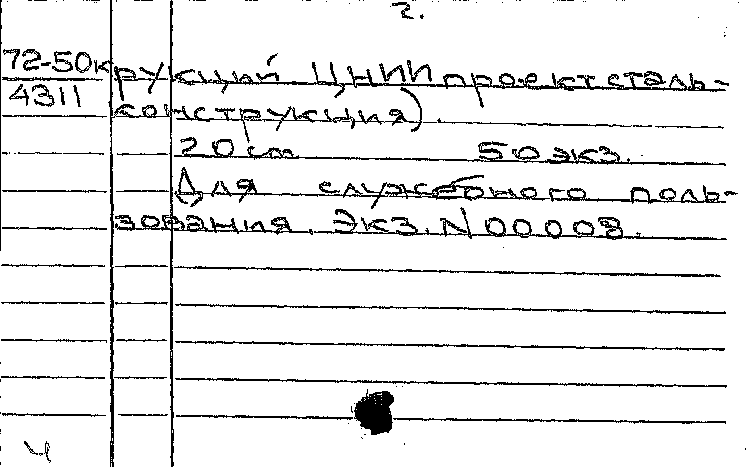 2.
72-50
4311
крукций ЦНИИпроектсталь-
конструкция).
20 cm 50 экз.
Для служебного поль-
зования. Экз. N 00008.
Ч